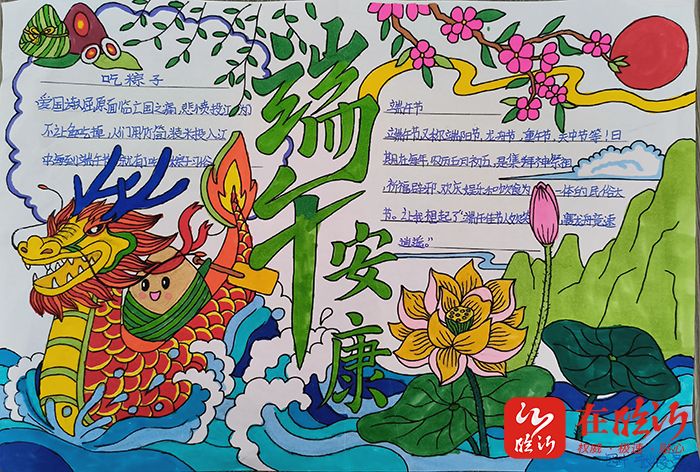 吃粽子
爱国诗人屈原面临亡国之痛,悲愤投江,为
不让鱼吃掉,人们用竹筒装米投入江
中,每到端午节
端午
安康
端午节
端午节又称端阳节,龙舟节,重午节,天中节等!日
期在每年农历五月初五,是集拜神祭祖
祈福辟邪,欢庆娱乐和饮食为一体的民俗大
节。让我想起了"端午佳节
逍遥。"
在临沂
权威